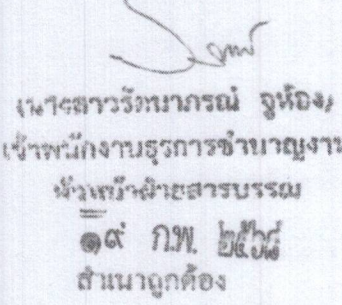 (นางสาวรัตนาภรณ์ จูห้อง)
เจ้าพนักงานธุรการชำนาญงาน
หัวหน้าฝ่ายสารบรรณ
๑๙ ก.พ. ๒๕๖๘
สำเนาถูกต้อง